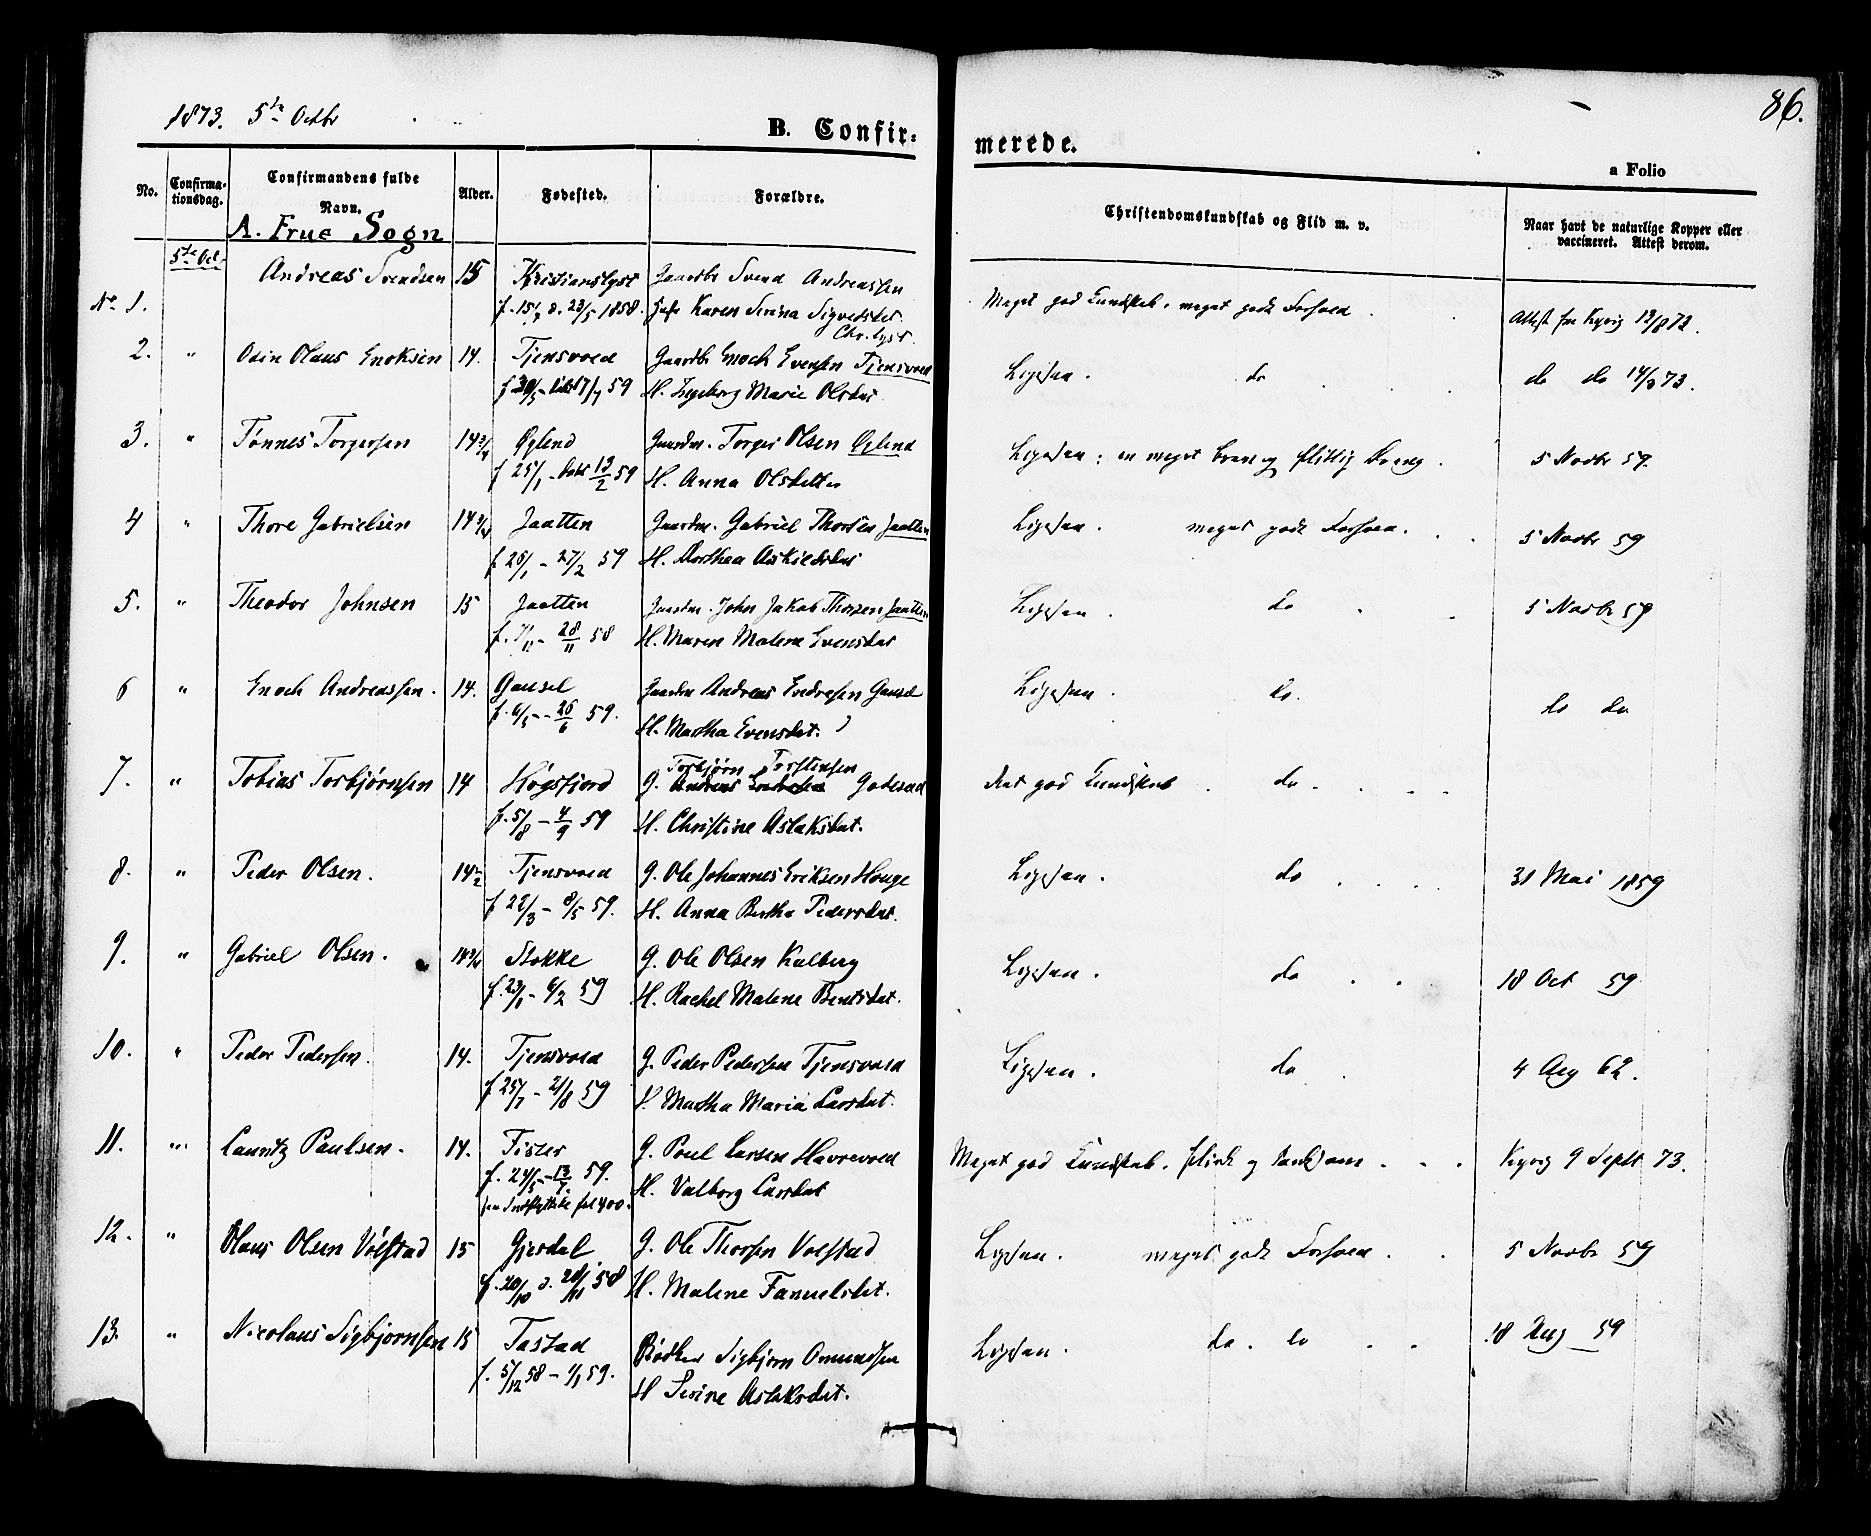 1873. 5te Octbr
B. Confir-
merede.
86.
a Folio
No.
Confirma-
tionsdag.
Confirmandens fulde
Navn.
Alder.
Fødested.
Forældre.
Christendomskundskab og Flid m. v.
Naar havt de naturlige Kopper eller
vaccineret. Attest derom.
A. Frue Sogn
5te Oct.
No 1. Andreas Svendsen 15 Kristianslyst Gaardbr Svend Andreassen
f. 15/4 d. 23/5 1858. Hust Karen Serina Sigvedsdtr. Chr.lyst.
Meget god Kundskab, meget godt Forhold Attest fra Kyvig 12/8 72.
2. " Odin Olaus Enoksen 14. Tjensvold Gaardbr Enoch Evensen Tjensvold
59 H. Ingeborg Marie Olsdat
Ligesaa. do do do 14/9 73.
3. " Tønnes Torgersen 14 3/4 Øglend Gaardm. Torger Olsen Øglend
f 25/1 - døbt 13/2 59 H. Anna Olsdatter
Ligesaa; en meget brav og flittig Dreng. 5 Novbr 59.
4 " Thore Gabrielsen 14 3/4 Jaatten Gaardm. Gabriel Thorsen Jaatten
f 26/1 - 27/2 59 H. Dorthea Askieldsdat
Ligesaa. meget godt Forhold. 5 Novbr 59
5. " Theodor Johnsen 15 Jaatten Gaardm. John Jakob Thorsen Jaatten
f. 7/11 - 28/11 58 H. Maren Malena Evensdat
Ligesaa. do 5 Novbr 59
6 " Enoch Andreassen. 14. Gausel Gaardm Andreas Endresen Gausel
f. 6/5 - 26/6 59. H. Martha Evensdat.
Ligesaa. do. do do
7. " Tobias Torbjørnsen 14 Høgsfjord G. Torbjørn Torstensen
f. 5/8 - 4/9 59 H. Christine Aslaksdat.
Ret god Kundskab. do.
8. " Peder Olsen. 14 1/2 Tjensvold G. Ole Johannes Eriksen Houge
f 22/3 - 8/5 59. H. Anna Bertha Pedersdat.
Ligesaa. do 31 Mai 1859
9. " Gabriel Olsen. 14 3/4 Stokke G. Ole Olsen Kalberg
f. 23/1 - 6/2 59 H. Rachel Malene Bentsdat.
Ligesaa. do 18 Oct 59
10. " Peder Pedersen. 14. Tjensvold G. Peder Pedersen Tjensvold
f 25/7 - 21/8 59 H. Martha Maria Larsdat.
Ligesaa. do 4 Aug 62.
11. " Lauritz Paulsen. 14. Fister G. Poul Larsen Havrevold
59. H. Valborg Larsdat
fol 400.
Meget god Kundskab, flink og Kyvig 9 Septr 73.
12. " Olaus Olsen Volstad 15 Gjesdal G. Ole Thorsen Volstad
f. 20/10 d. 28/11 58 H. Malene Fanuelsdat.
Ligesaa. meget godt Forhold. 5 Novbr 59
13. " Nicolaus Sigbjørnsen 15 Tastad Bødker Sigbjørn Omundsen
f. 5/12 58 - 1/1 59. H Serine Aslaksdat.
Ligesaa. do. do 18 Aug 59